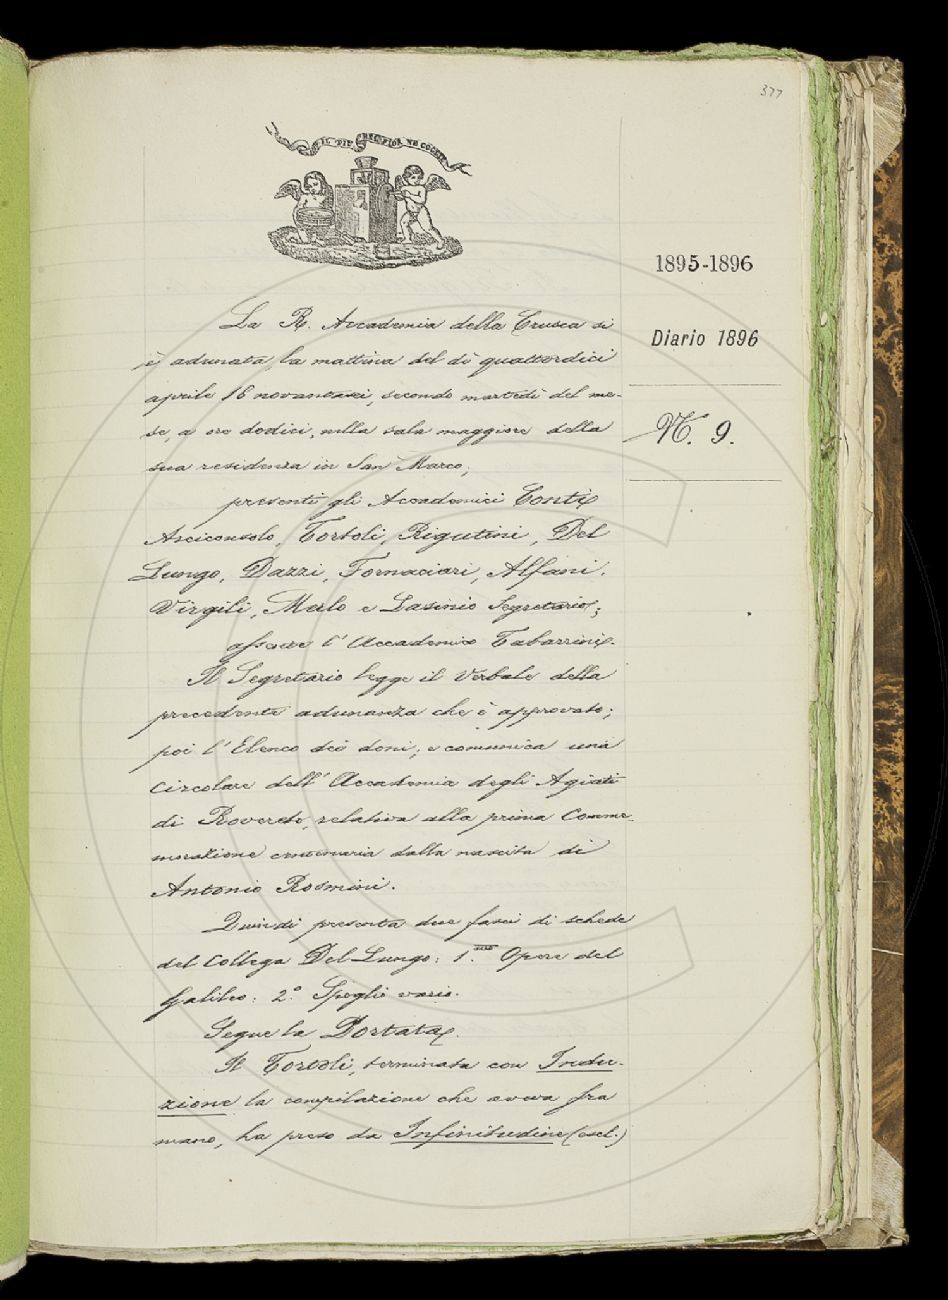 377
IL PIÙ BEL FIOR NE COGLIE
1895-1896
Diario 1896
N. 9.
La R. Accademia della Crusca si
è adunata la mattina del dì quattordici
aprile 18 novantasei, secondo martedì del me-
se, a ore dodici, nella sala maggiore della
sua residenza in San Marco;
presenti gli Accademici Conti
Arciconsolo, Tortoli, Rigutini, Del
Lungo, Dazzi, Fornaciari, Alfani,
Virgili, Merlo e Lasinio Segretario;
assente l'Accademico Tabarrini.
Il Segretario legge il Verbale della
precedente adunanza che è approvato;
poi l'Elenco dei doni; e comunica una
circolare dell'Accademia degli Agiati
di Rovereto, relativa alla prima Comme-
morazione centenaria dalla nascita di
Antonio Rosmini.
Quindi presenta due fasci di schede
del Collega Del Lungo: 1.mo Opere del
Galileo: 2.° Spoglio vario.
Segue la Portata.
Il Tortoli, terminata con Indu-
zione la compilazione che aveva fra
mano, ha preso da Infinitudine (escl.)